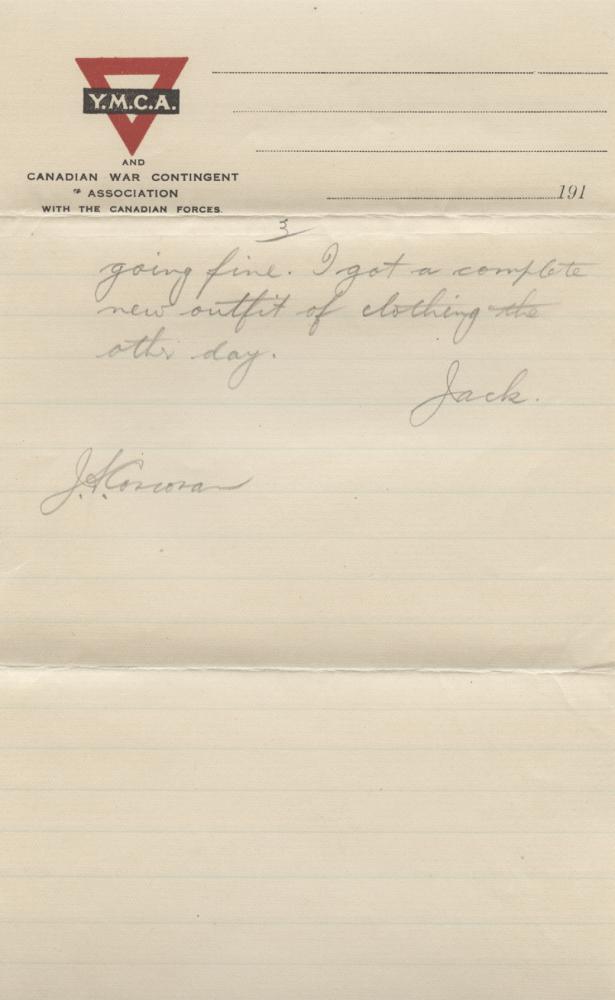 Y.M.C.A.
AND
CANADIAN WAR CONTINGENT
ASSOCIATION
WITH THE CANADIAN FORCES.
191
3
going fine. I got a complete
new outfit of clothing the
other day.
Jack.
J.A. Corcoran